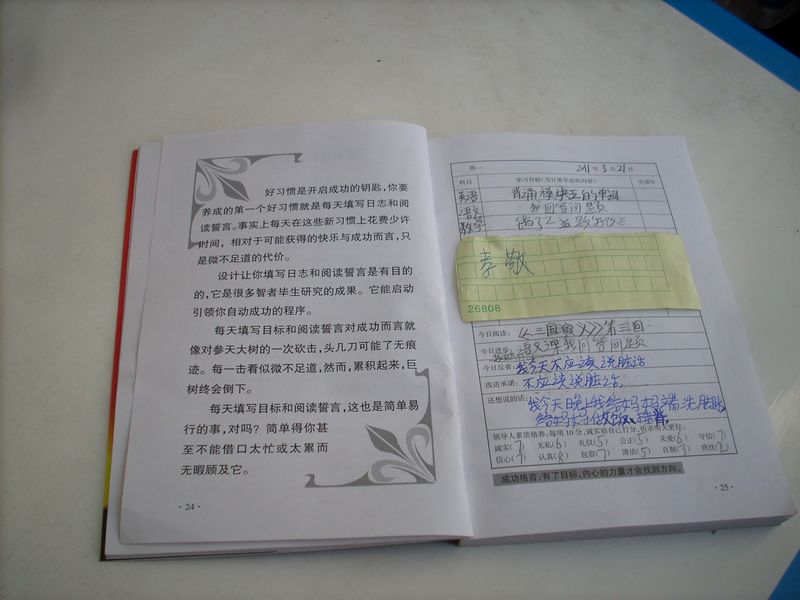 好习惯是开启成功的钥匙,你要
养成的第一个好习惯就是每天填写日志和阅
读誓言。事实上每天在这些新习惯上花费少许
时间,相对于可能获得的快乐与成功而言,只
是微不足道的代价。
设计让你填写日志和阅读誓言是有目的
的,它是很多智者毕生研究的成果。它能启动
引领你自动成功的程序。
每天填写目标和阅读誓言对成功而言就
像对参天大树的一次砍击,头几刀可能了无痕
迹。每一击看似微不足道,然而,累积起来,巨
树终会倒下。
每天填写目标和阅读誓言,这也是简单易
行的事,对吗?简单得你甚
至不能借口太忙或太累而
无暇顾及它。
·24·
周一 年3月21日
科目 学习目标(当日要学会的内容) 完成%
英语 背诵模块五的单词
语文
数学
孝敬
26808
今日阅读:《三国演义》第三回
今日进步:语文课我回答问题
今日反省:我今天不应该说脏话
改进承诺:不应该说脏话。
还想说的话:我今天晚上我给妈妈端洗脚
给妈妈做饭、
领导人素质培养:每项10分,诚实给自己打分,祈求明天更好。
诚实(7) 无私(6) 礼仪(5) 公正(5) 关爱(6) 守信(7)
信心(7) 认真(8) 包容(7) 清洁(5) 自制(3) 热忱(2)
成功格言:有了目标,内心的力量才会找到方向。
·25·